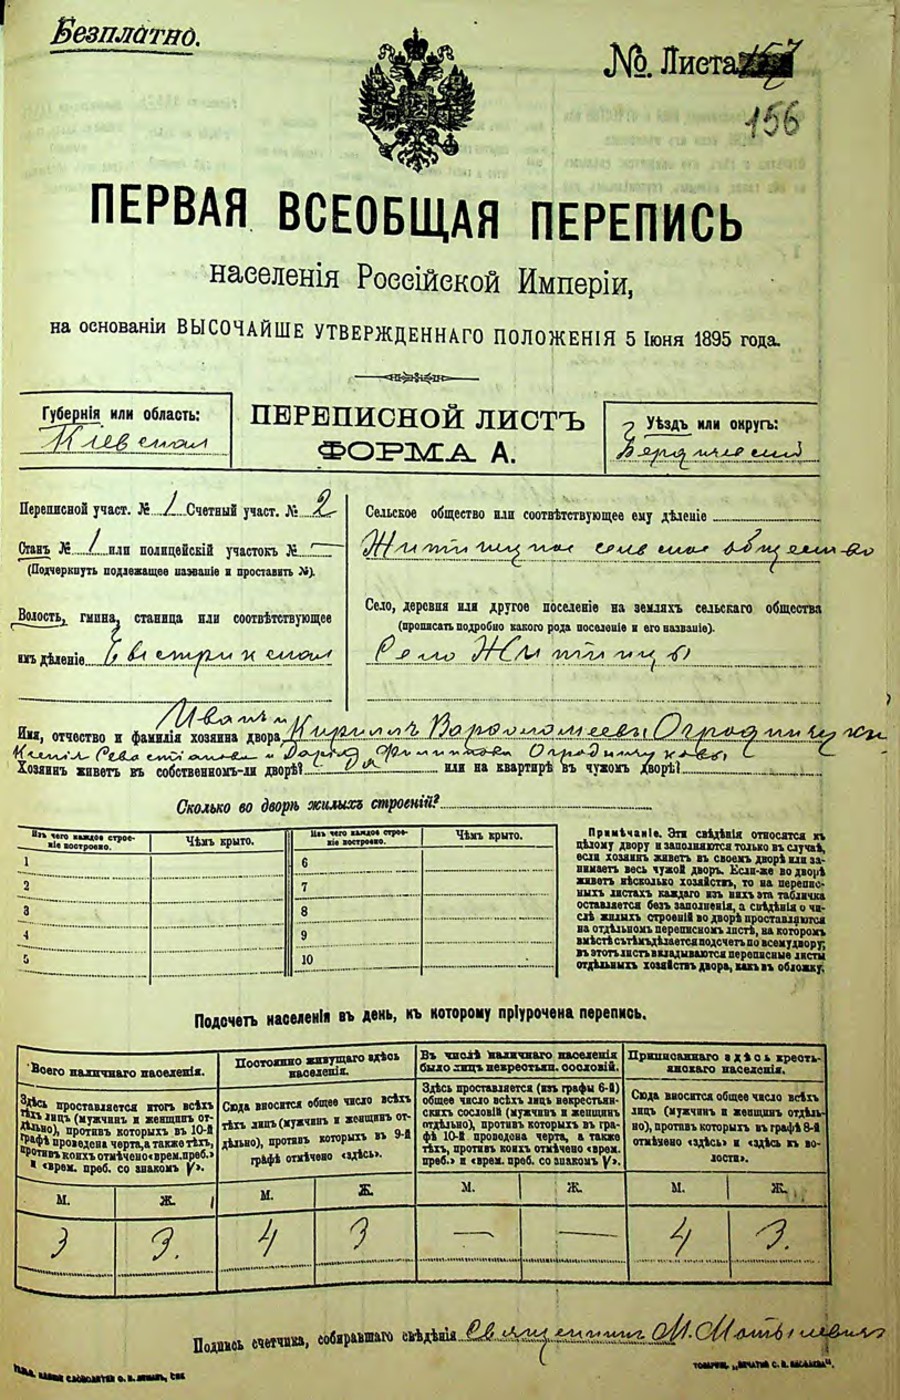 Безплатно.
№. Листа
156
ПЕРВАЯ ВСЕОБЩАЯ ПЕРЕПИСЬ
населенія Россійской Имперіи,
на основаніи ВЫСОЧАЙШЕ УТВЕРЖДЕННАГО ПОЛОЖЕНІЯ 5 Іюня 1895 года.
Губернія или область:
Кіевская
ПЕРЕПИСНОЙ ЛИСТЪ
ФОРМА А.
Уѣздъ или округъ:
Бердичевскій
Переписной участ. № 1 Счетный участ. № 2
Станъ № 1 или полицейскій участокъ № —
(Подчеркнуть подлежащее названіе и проставить №).
Волость, гмина, станица или соотвѣтствующее
имъ дѣленіе
Сельское общество или соотвѣтствующее ему дѣленіе
Житницкое сельское общество
Село, деревня или другое поселеніе на земляхъ сельскаго общества
(прописать подробно какого рода поселеніе и его названіе).
Село Житницы
Иванъ и
Имя, отчество и фамилія хозяина двора Кириллъ Варфоломеевы Огродничуки
Ксенія Севастіанова и Дарія Филиппова Огродничуковы
Хозяинъ живетъ въ собственномъ-ли дворѣ? Да или на квартирѣ въ чужомъ дворѣ?
Сколько во дворѣ жилыхъ строеній?
Изъ чего каждое строеніе построено. Чѣмъ крыто. Изъ чего каждое строеніе построено. Чѣмъ крыто.
1 6
2 7
3 8
4 9
5 10
Примѣчаніе. Эти свѣдѣнія относятся къ
цѣлому двору и заполняются только въ случаѣ,
если хозяинъ живетъ въ своемъ дворѣ или за-
нимаетъ весь чужой дворъ. Если-же во дворѣ
живетъ нѣсколько хозяйствъ, то на перепис-
ныхъ листахъ каждаго изъ нихъ эта табличка
оставляется безъ заполненія, а свѣдѣнія о чи-
слѣ жилыхъ строеній во дворѣ проставляются
на отдѣльномъ переписномъ листѣ, на которомъ
вмѣстѣ съ тѣмъ дѣлается подсчетъ по всему двору;
въ этотъ листъ вкладываются переписные листы
отдѣльныхъ хозяйствъ двора, какъ въ обложку.
Подсчетъ населенія въ день, къ которому пріурочена перепись.
Всего наличнаго населенія.
Здѣсь проставляется итогъ всѣхъ
тѣхъ лицъ (мужчинъ и женщинъ от-
дѣльно), противъ которыхъ въ 10-й
графѣ проведена черта, а также тѣхъ,
противъ коихъ отмѣчено «врем. преб.»
и «врем. преб. со знакомъ V».
Постоянно живущаго здѣсь
населенія.
Сюда вносится общее число всѣхъ
тѣхъ лицъ (мужчинъ и женщинъ от-
дѣльно), противъ которыхъ въ 9-й
графѣ отмѣчено «здѣсь».
Въ числѣ наличнаго населенія
было лицъ некрестьян. сословій.
Здѣсь проставляется (изъ графы 6-й)
общее число всѣхъ лицъ некрестьян-
скихъ сословій (мужчинъ и женщинъ
отдѣльно), противъ которыхъ въ гра-
фѣ 10-й проведена черта, а также
тѣхъ, противъ коихъ отмѣчено «врем.
преб.» и «врем. преб. со знакомъ V».
Приписаннаго здѣсь кресть-
янскаго населенія.
Сюда вносится общее число всѣхъ
лицъ (мужчинъ и женщинъ отдѣль-
но), противъ которыхъ въ графѣ 8-й
отмѣчено «здѣсь» и «здѣсь къ во-
лости».
М. Ж. М. Ж. М. Ж. М. Ж.
3 3. 4 3 — — 4 3.
Подпись счетчика, собиравшаго свѣдѣнія Священникъ М.